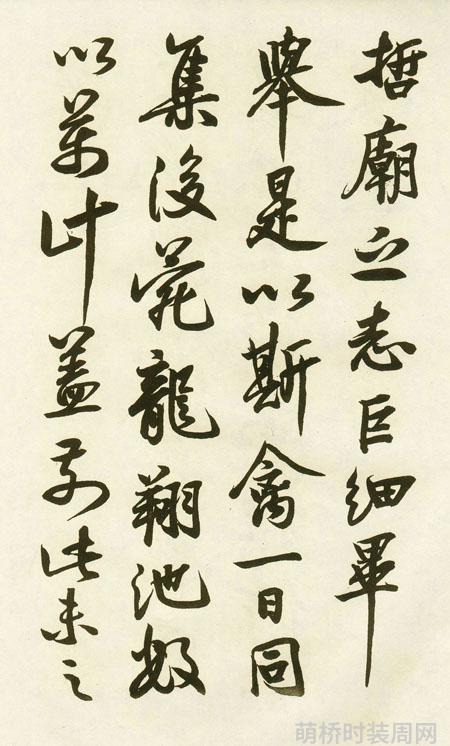 哲廟之志巨細畢
舉是以斯禽一日同
集後苑龍翔池數
以萬計蓋前此未之
萌桥时装周网